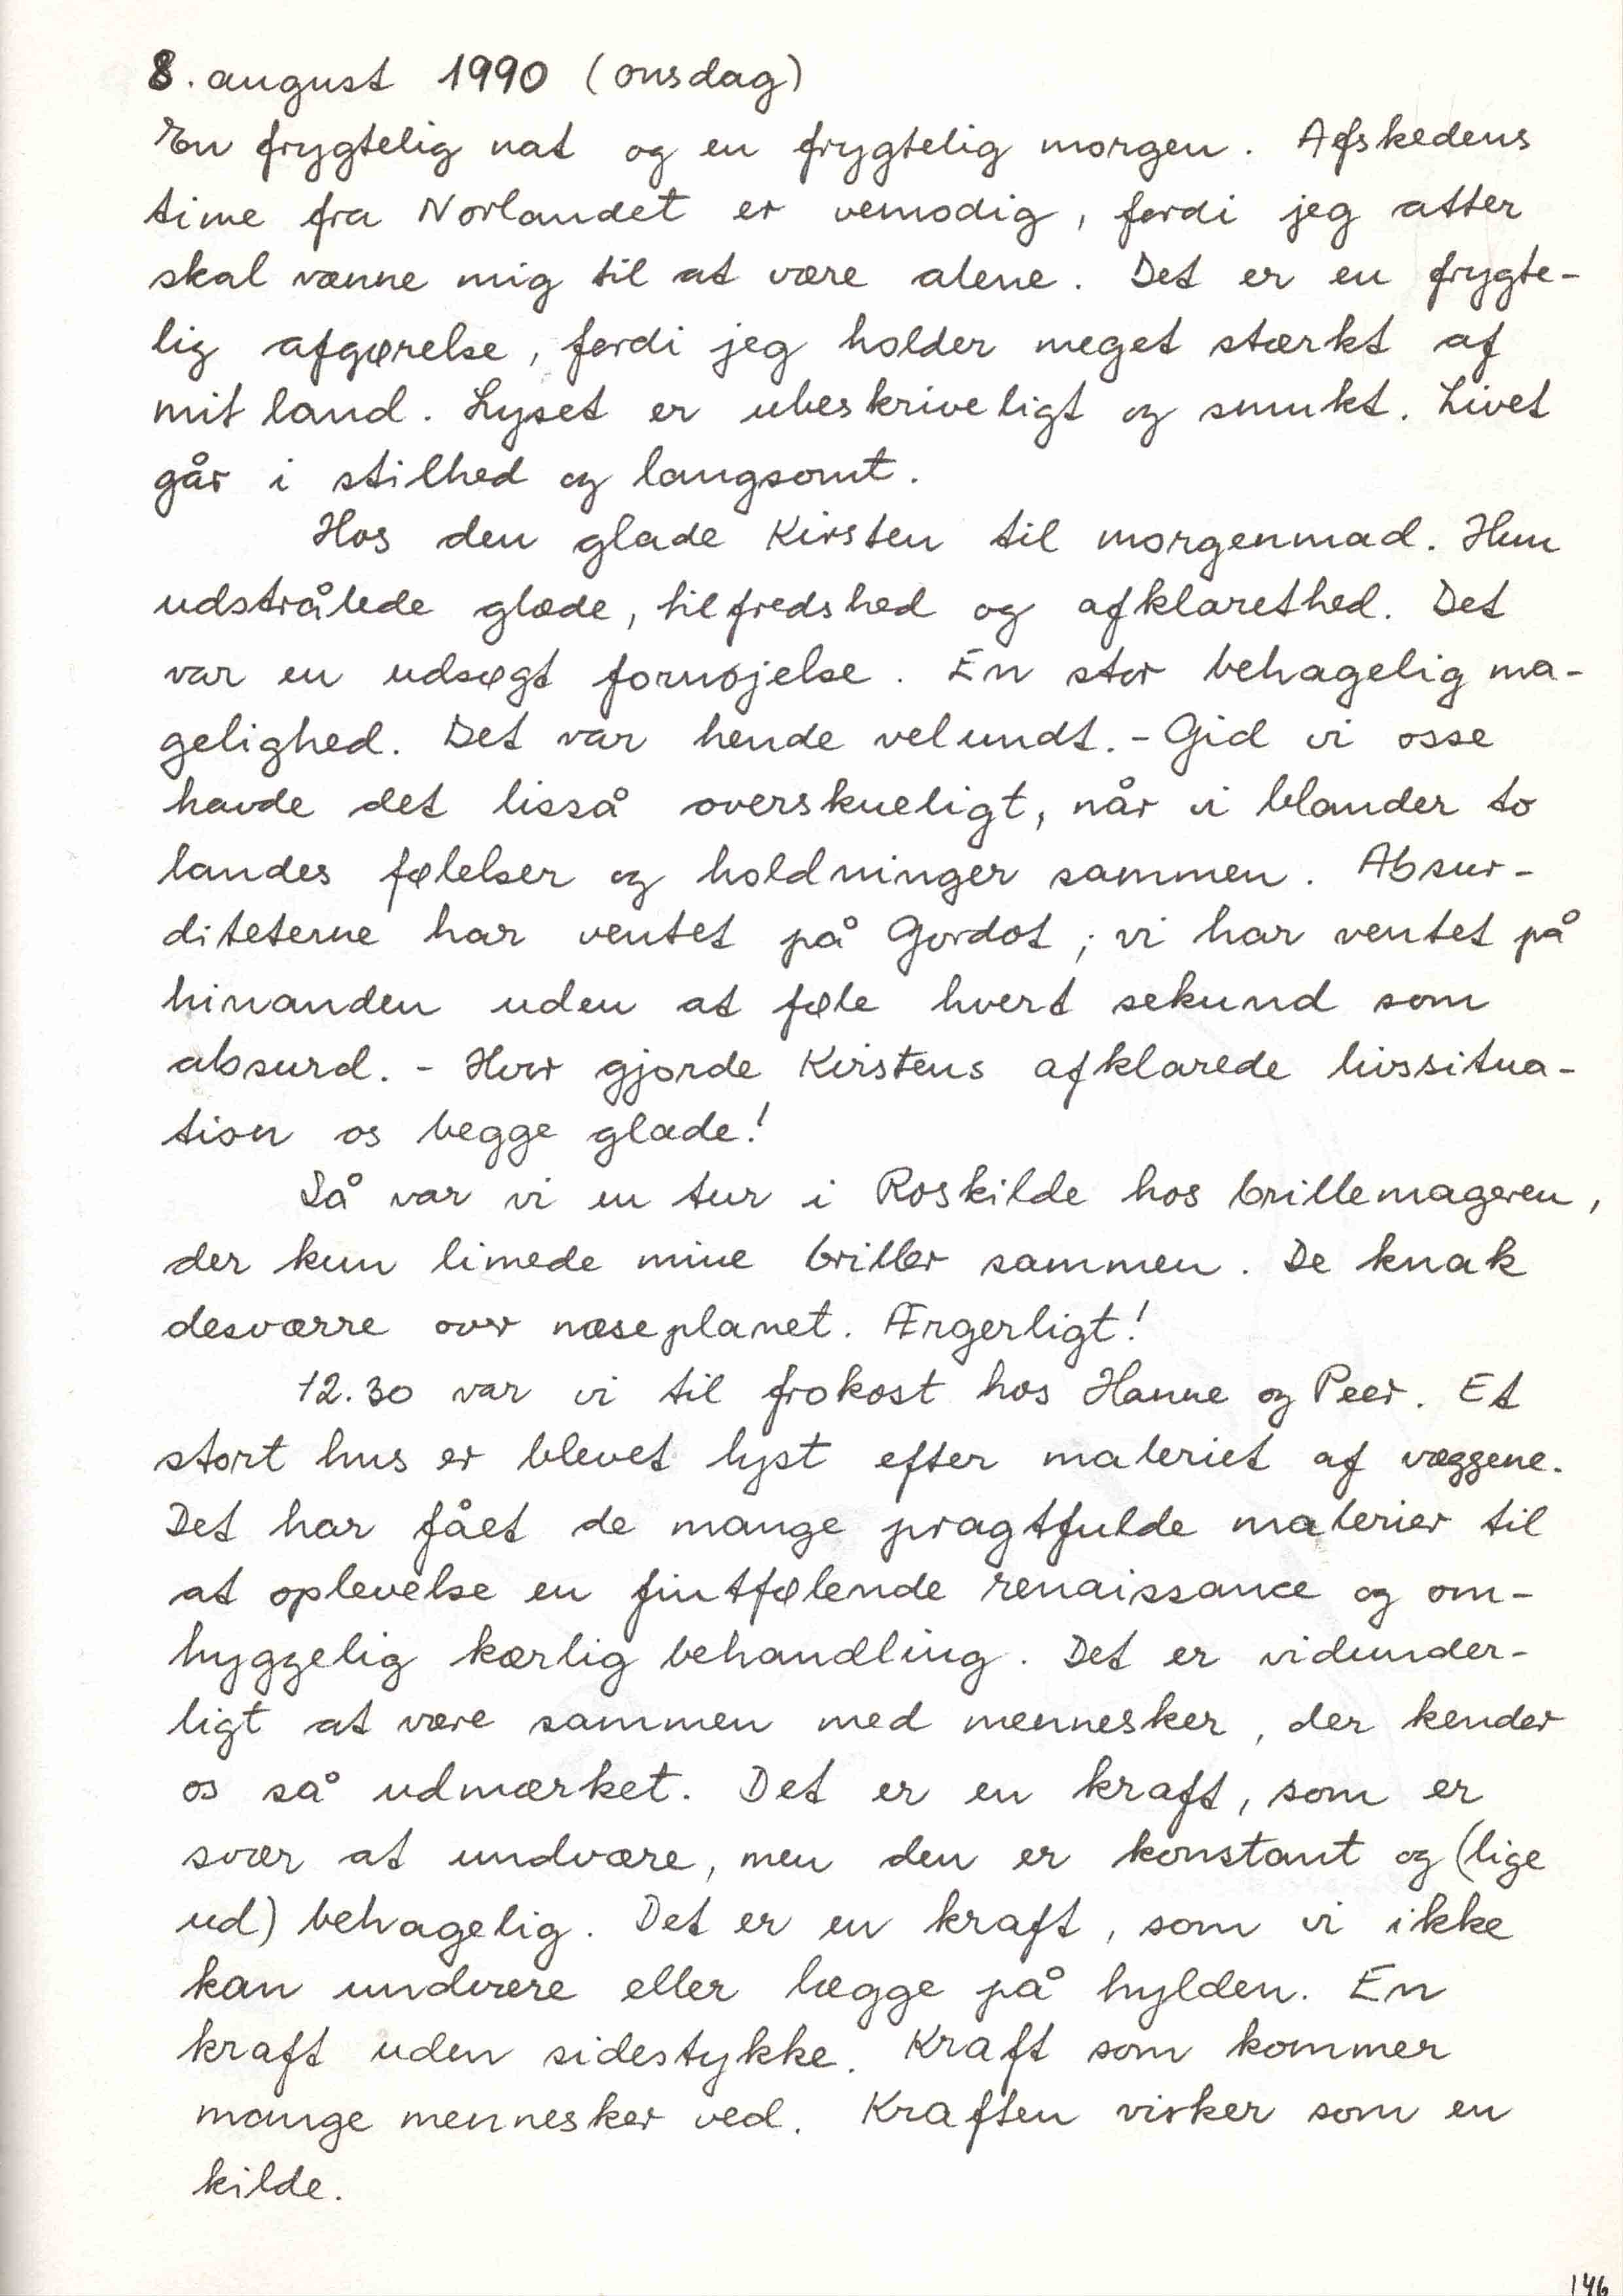 8. august 1990 (onsdag)
En frygtelig nat og en frygtelig morgen. Afskedens
time fra Norlandet er vemodig, fordi jeg atter
skal vænne mig til at være alene. Det er en frygte-
lig afgørelse, fordi jeg holder meget stærkt af
mit land. Lyset er ubeskriveligt og smukt. Livet
går i stilhed og langsomt.
Hos den glade Kirsten til morgenmad. Hun
udstrålede glæde, tilfredshed og afklarethed. Det
var en udsøgt fornøjelse. En stor behagelig ma-
gelighed. Det var hende velundt. - Gid vi osse
havde det lisså overskueligt, når vi blander to
landes følelser og holdninger sammen. Absur-
diteterne har ventet på Gordot ; vi har ventet på
hinanden uden at føle hvert sekund som
absurd. - Hvor gjorde Kirstens afklarede livssitua-
tion os begge glade!
Så var vi en tur i Roskilde hos brillemageren,
der kun limede mine briller sammen. De knak
desværre over næseplanet. Ærgerligt!
12.30 var vi til frokost hos Hanne og Peer. Et
stort hus er blevet lyst efter maleriet af væggene.
Det har fået de mange pragtfulde malerier til
at oplevelse en fintfølende renaissance og om-
hyggelig kærlig behandling. Det er vidunder-
ligt at være sammen med mennesker, der kender
os så udmærket. Det er en kraft, som er
svær at undvære, men den er konstant og (lige
ud) behagelig. Det er en kraft, som vi ikke
kan undvære eller lægge på hylden. En
kraft uden sidestykke. Kraft som kommer
mange mennesker ved. Kraften virker som en
kilde.
146